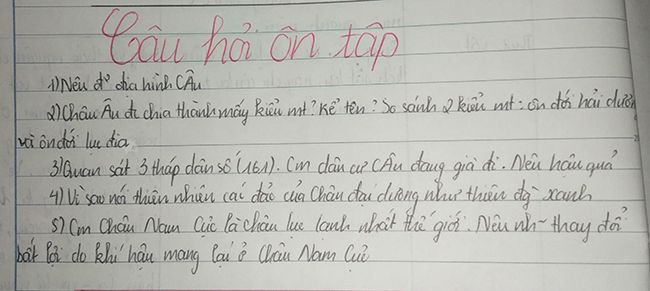 Câu hỏi ôn tập
1) Nêu đ² địa hình CÂu
2) Châu Âu đc chia thành mấy kiểu mt? Kể tên? So sánh 2 kiểu mt: ôn đới hải dươn
và ôn đới lục địa
3) Quan sát 3 tháp dân số (161). Cm dân cư CÂu đang già đi. Nêu hậu quả
4) Vì sao nói thiên nhiên các đảo của Châu đại dương như thiên đg xanh
5) Cm Châu Nam Cực là châu lục lạnh nhất thế giới. Nêu nh~ thay đổi
bất lợi do khí hậu mang lại ở Châu Nam Cực